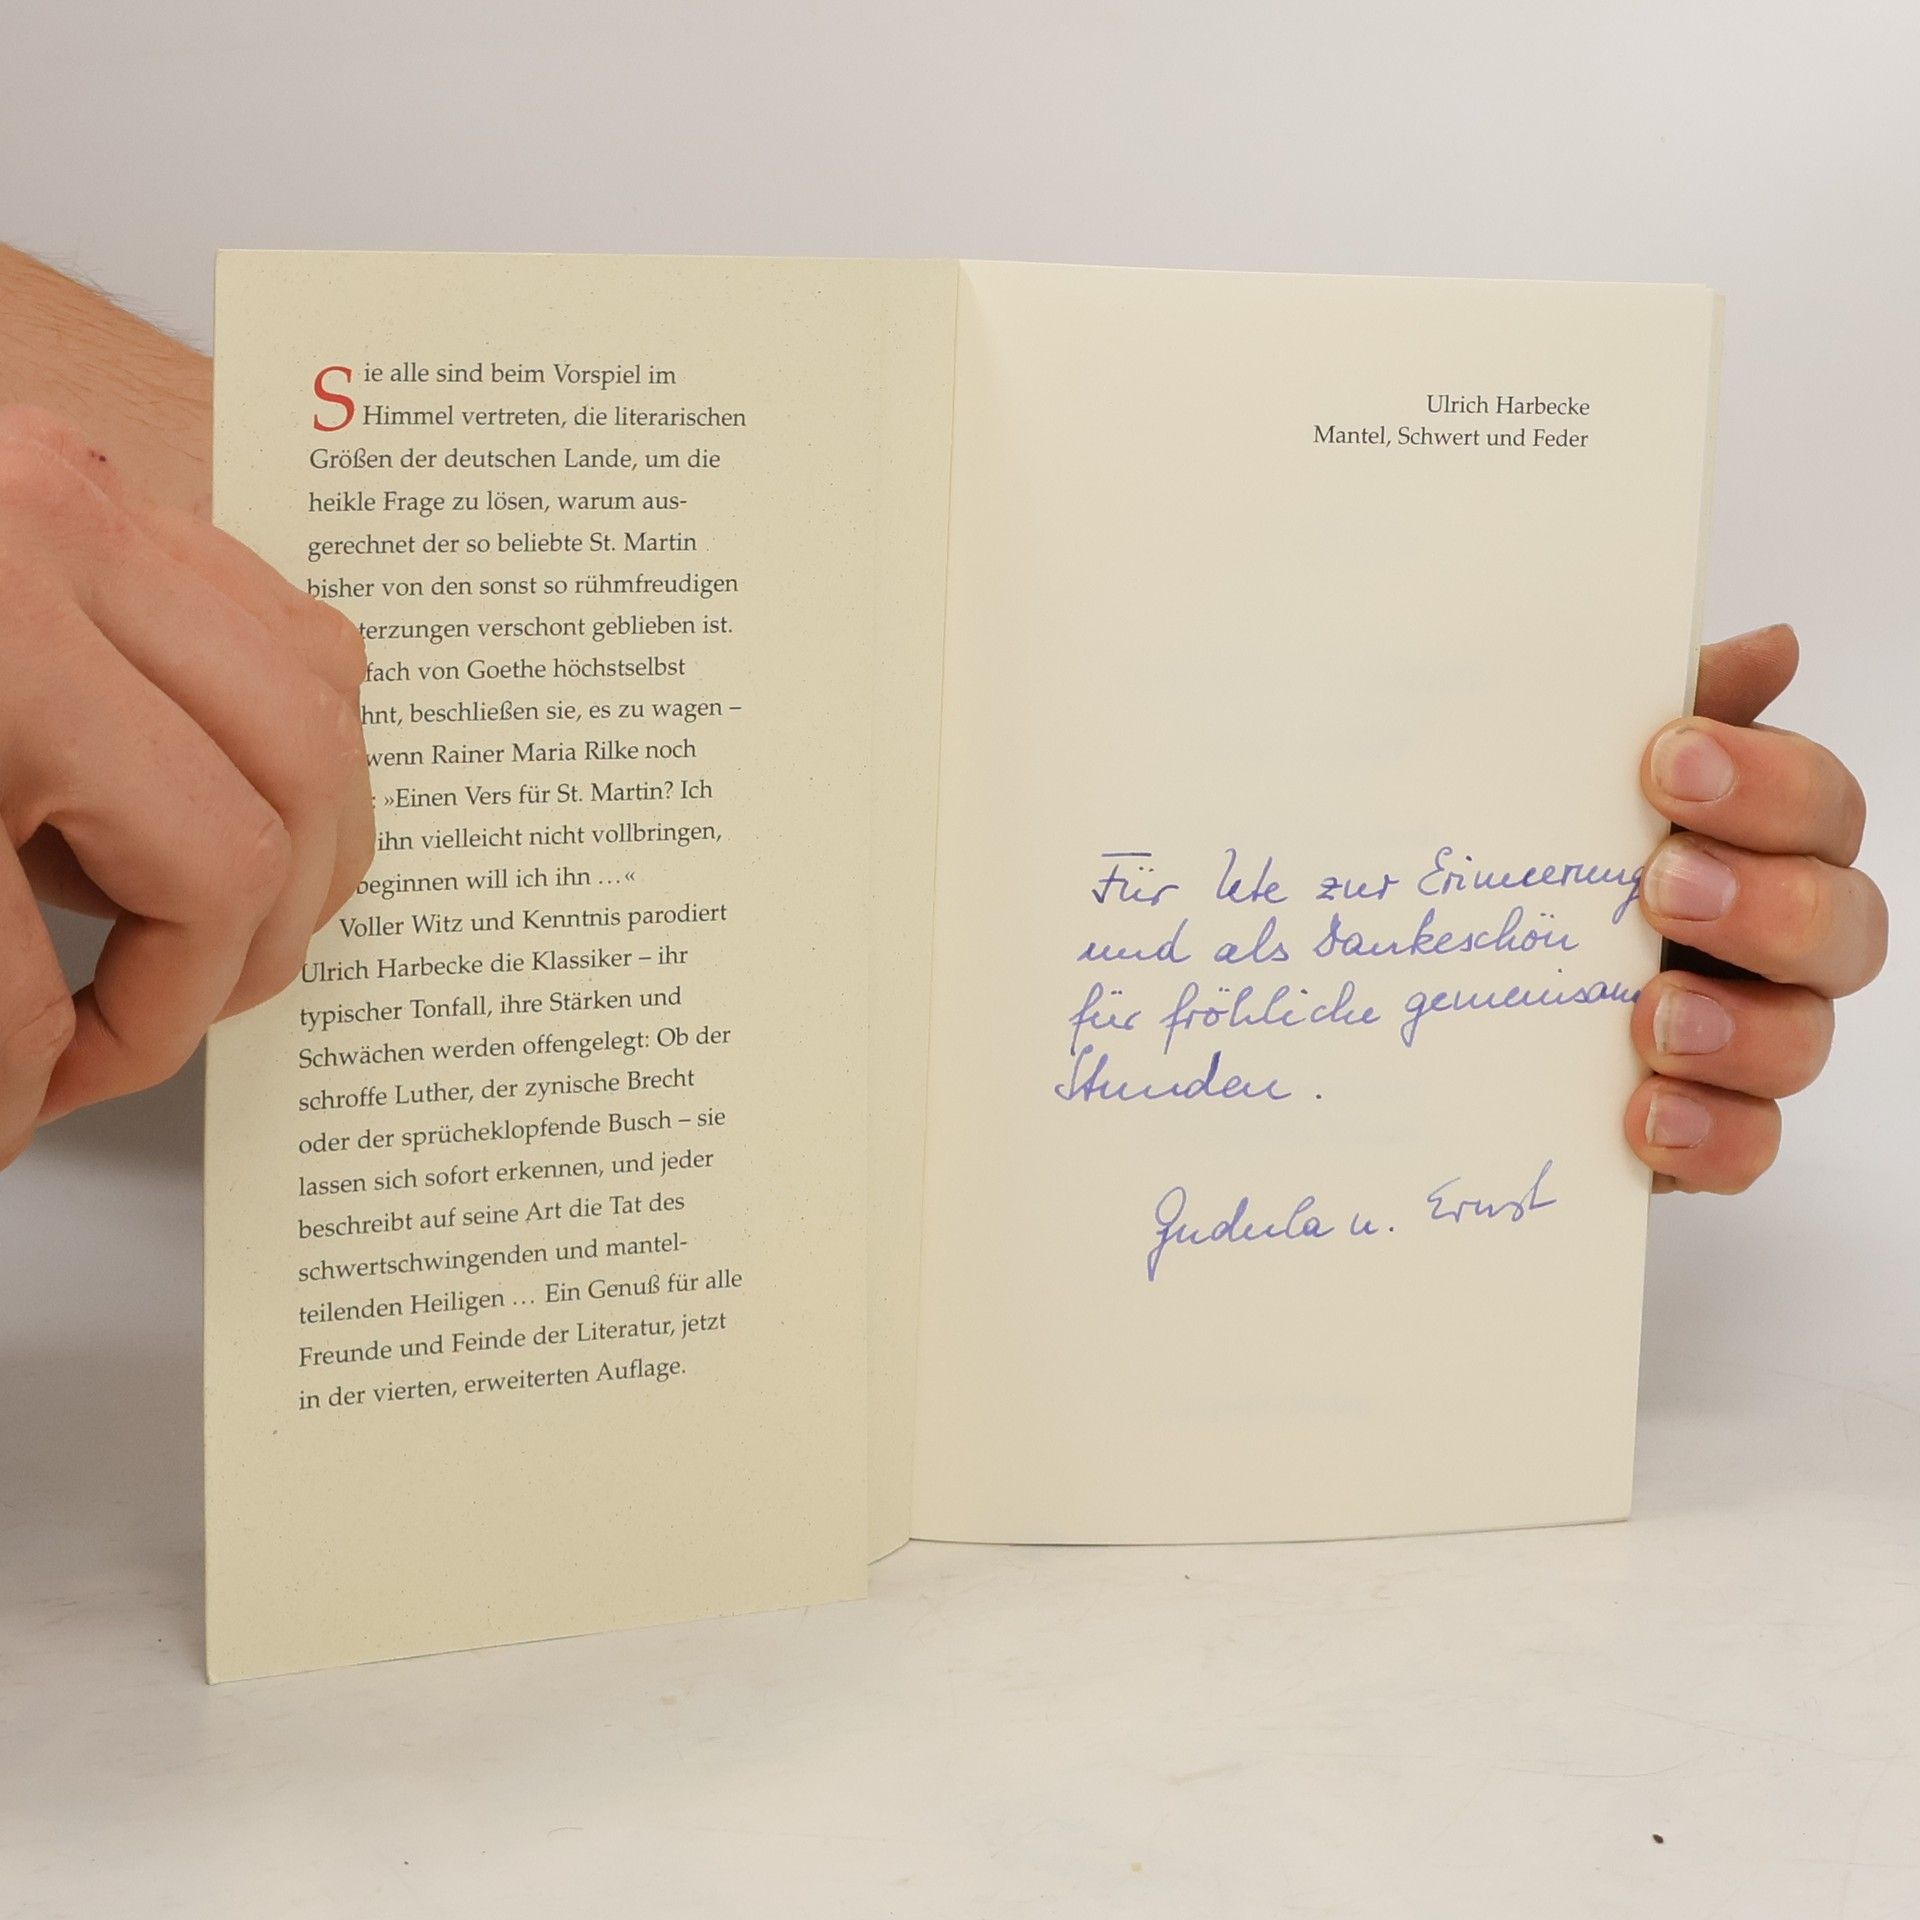 Sie alle sind beim Vorspiel im
Himmel vertreten, die literarischen
Größen der deutschen Lande, um die
heikle Frage zu lösen, warum aus-
gerechnet der so beliebte St. Martin
bisher von den sonst so rühmfreudigen
terzungen verschont geblieben ist.
fach von Goethe höchstselbst
hnt, beschließen sie, es zu wagen –
wenn Rainer Maria Rilke noch
: »Einen Vers für St. Martin? Ich
ihn vielleicht nicht vollbringen,
beginnen will ich ihn …«
Voller Witz und Kenntnis parodiert
Ulrich Harbecke die Klassiker – ihr
typischer Tonfall, ihre Stärken und
Schwächen werden offengelegt: Ob der
schroffe Luther, der zynische Brecht
oder der sprücheklopfende Busch – sie
lassen sich sofort erkennen, und jeder
beschreibt auf seine Art die Tat des
schwertschwingenden und mantel-
teilenden Heiligen … Ein Genuß für alle
Freunde und Feinde der Literatur, jetzt
in der vierten, erweiterten Auflage.
Ulrich Harbecke
Mantel, Schwert und Feder
Für Ute zur Erinnerung
und als Dankeschön
für fröhliche gemeinsam
Stunden.
Gudula u. Ernst